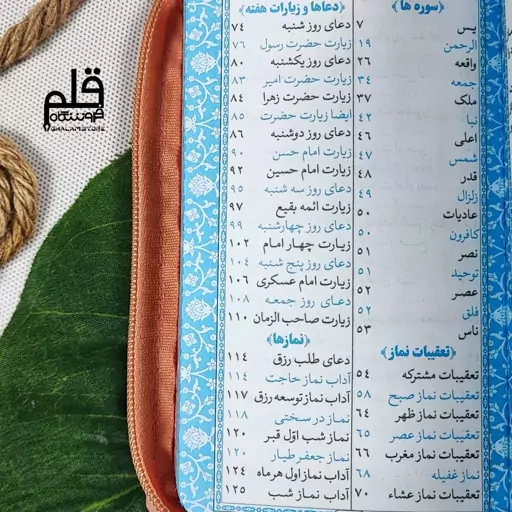 قلم
فروشگاه
GHALAMSTORE
﴿سوره ها﴾
یس ۷
الرحمن ۱۹
واقعه ۲۶
جمعه ۳۴
ملک ۳۷
نبا ۴۲
اعلی ۴۶
شمس ۴۷
قدر ۴۸
زلزال ۴۹
عادیات ۵۰
کافرون ۵۰
نصر ۵۱
توحید ۵۱
عصر ۵۲
فلق ۵۲
ناس ۵۳
﴿تعقیبات نماز﴾
تعقیبات مشترکه ۵۴
تعقیبات نماز صبح ۵۸
تعقیبات نماز ظهر ۶۴
تعقیبات نماز عصر ۶۵
تعقیبات نماز مغرب ۶۶
نماز غفیله ۶۸
تعقیبات نماز عشاء ۷۰
﴿دعاها و زیارات هفته﴾
دعای روز شنبه ۷۴
زیارت حضرت رسول ۷۶
دعای روز یکشنبه ۸۰
زیارت حضرت امیر ۸۳
زیارت حضرت زهرا ۸۴
ایضا زیارت حضرت ۸۵
دعای روز دوشنبه ۸۶
زیارت امام حسن ۹۰
زیارت امام حسین ۹۲
دعای روز سه شنبه ۹۵
زیارت ائمه بقیع ۹۷
دعای روز چهارشنبه ۹۹
زیارت چهار امام ۱۰۲
دعای روز پنج شنبه ۱۰۴
زیارت امام عسکری ۱۰۶
دعای روز جمعه ۱۰۸
زیارت صاحب الزمان ۱۱۰
﴿نمازها﴾
دعای طلب رزق ۱۱۴
آداب نماز حاجت ۱۱۴
آداب نماز توسعه رزق ۱۱۷
نماز در سختی ۱۱۸
نماز شب اوّل قبر ۱۲۰
نماز جعفر طیار ۱۲۰
آداب نماز اول هر ماه ۱۲۴
آداب نماز شب ۱۲۵